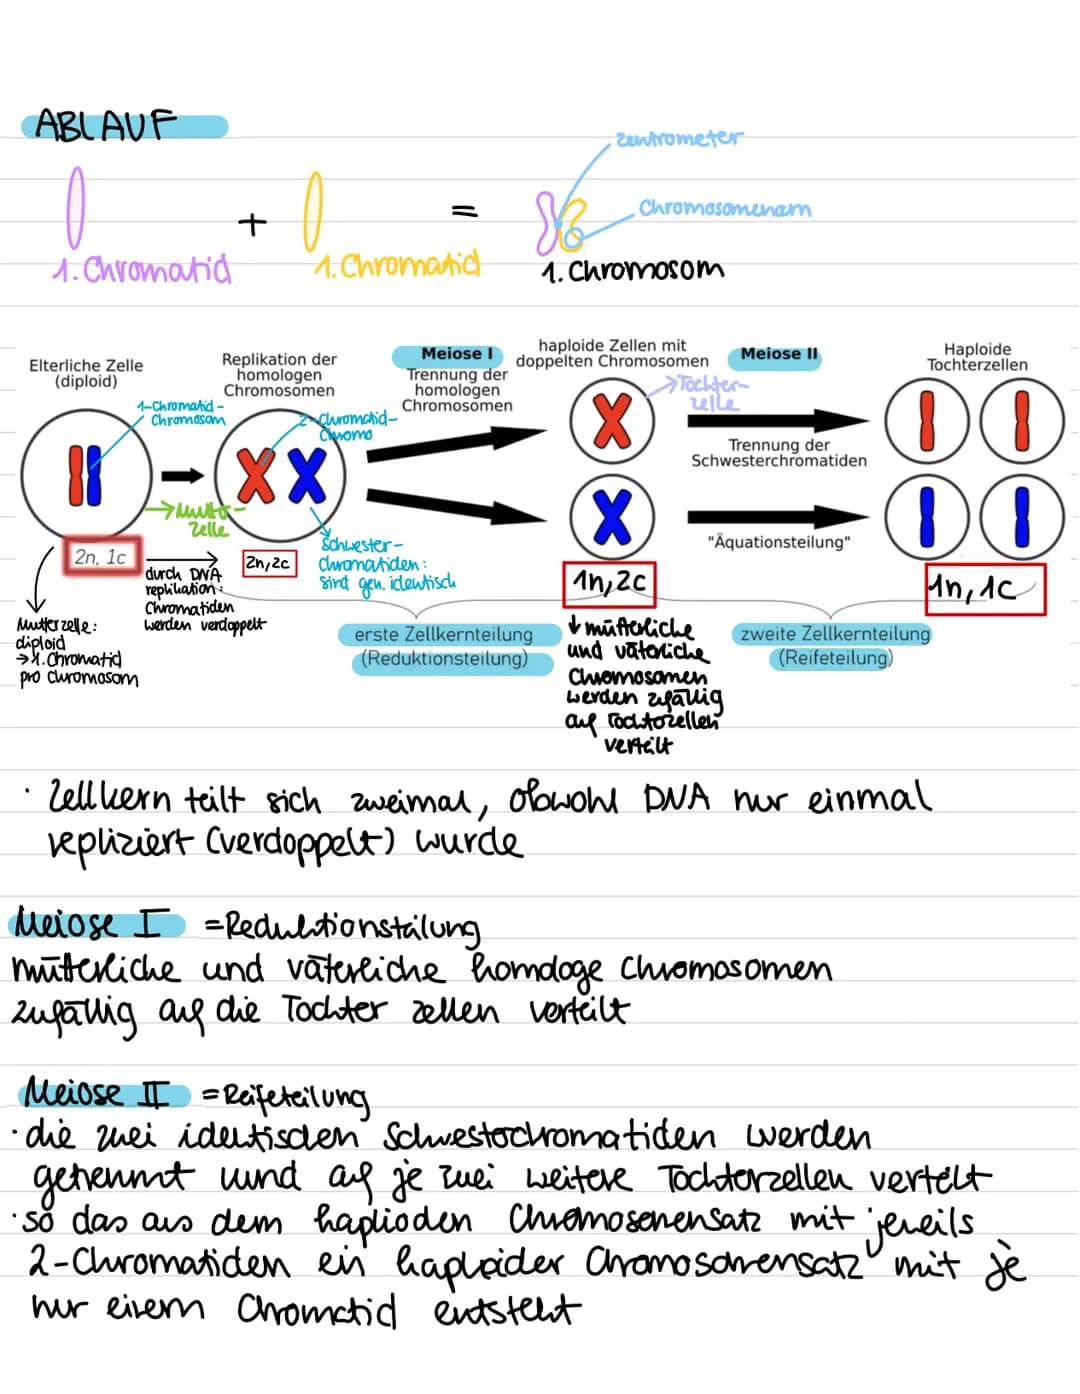 ABLAUF
zentrometer
+
=
Chromosomenarm
1. Chromatid
1. Chromatid
1. Chromosom
Elterliche Zelle
(diploid)
Replikation der
homologen
Chromosomen
Meiose I
Trennung der
homologen
Chromosomen
haploide Zellen mit
doppelten Chromosomen
Meiose II
Haploide
Tochterzellen
1-Chromatid-
Chromosom
2-Chromatid-
Chromo
→ Tochter-
zelle
Trennung der
Schwesterchromatiden
→ Mutter-
zelle
"Äquationsteilung"
2n, 1c
durch DNA
replikation:
Chromatiden
werden verdoppelt
2n, 2c
Schwester-
chromatiden:
sind gen. identisch
1n, 2c
1n, 1c
Mutterzelle:
diploid
→ 1. Chromatid
pro Chromosom
erste Zellkernteilung
(Reduktionsteilung)
↓ mütterliche
und väterliche
Chromosomen
werden zufällig
auf Tochterzellen
verteilt
zweite Zellkernteilung
(Reifeteilung)
· Zellkern teilt sich zweimal, obwohl DNA nur einmal
repliziert (verdoppelt) wurde
Meiose I = Reduktionsteilung
mütterliche und väterliche homologe Chromosomen
zufällig auf die Tochter zellen verteilt
Meiose II = Reifeteilung
· die zwei identischen Schwesterchromatiden werden
getrennt und auf je zwei weitere Tochterzellen verteilt
· so das aus dem haploiden Chromosomensatz mit jeweils
2-Chromatiden ein haploider Chromosomensatz mit je
nur einem Chromatid entsteht